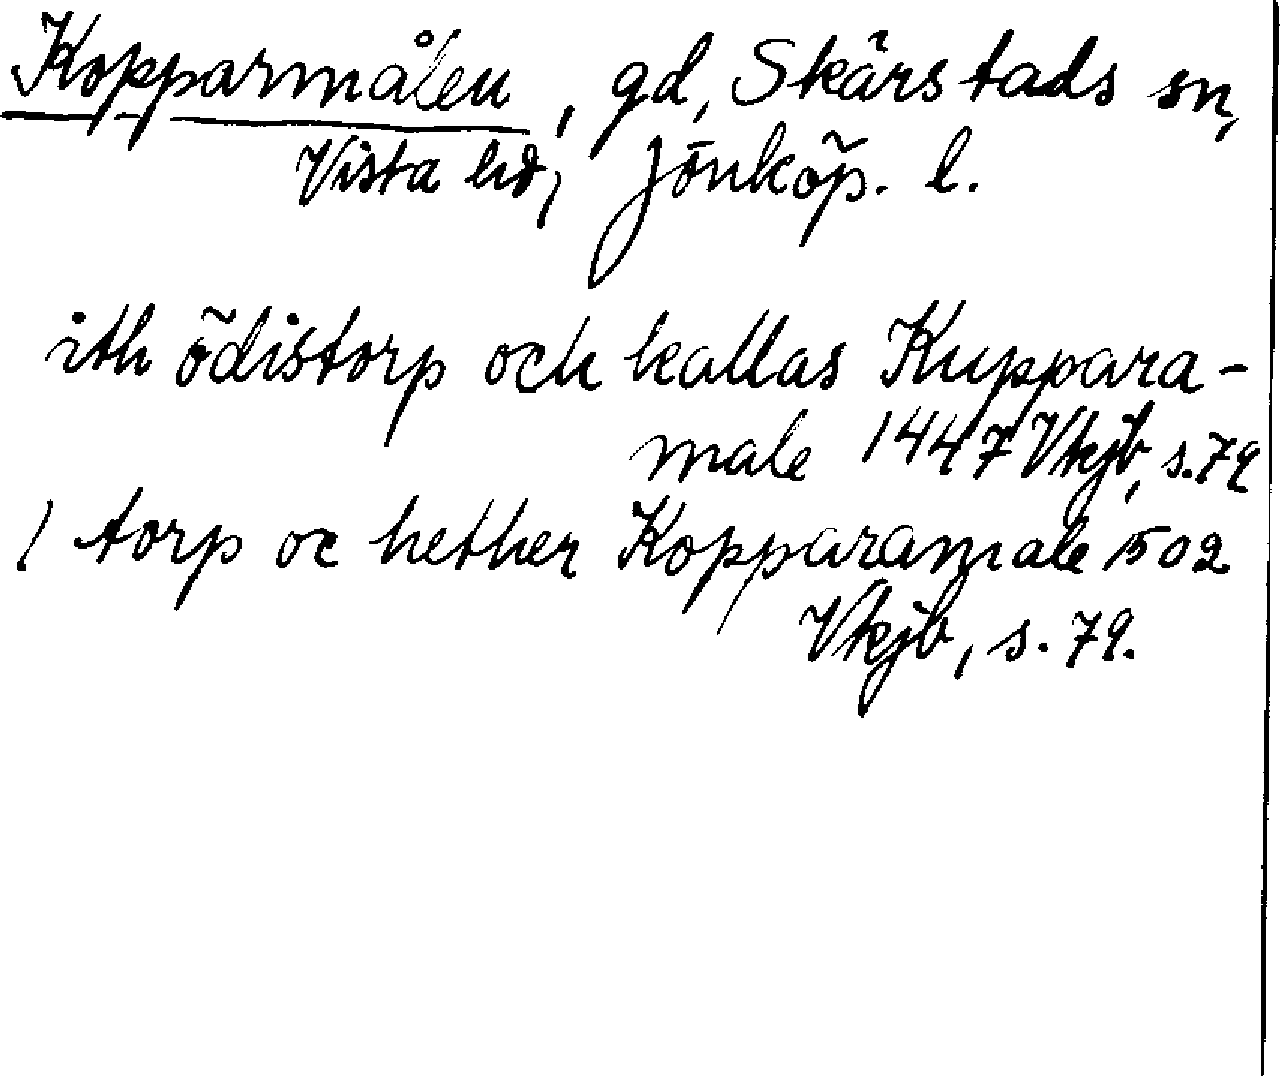 Kopparmålen, gd, Skärstads sn,
Vista hd, Jönköp. l.
ith ödistorp och kallas Kuppara-
male 1447 Vkjb, s. 79
1 torp oc hether Kopparamale 1502
Vkjb, s. 79.